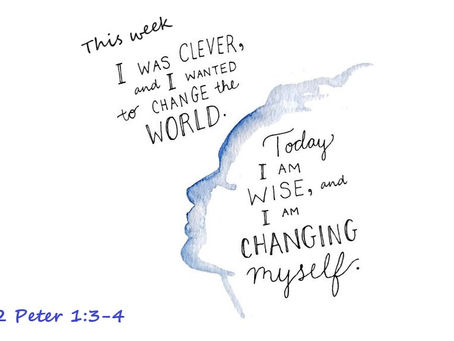 This week
I WAS CLEVER,
and I WANTED
to CHANGE the
WORLD.
Today
I AM
WISE, and
I AM
CHANGING
myself.
2 Peter 1:3-4